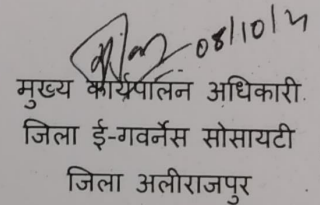 08/10/21
मुख्य कार्यपालन अधिकारी
जिला ई-गवर्नेस सोसायटी
जिला अलीराजपुर